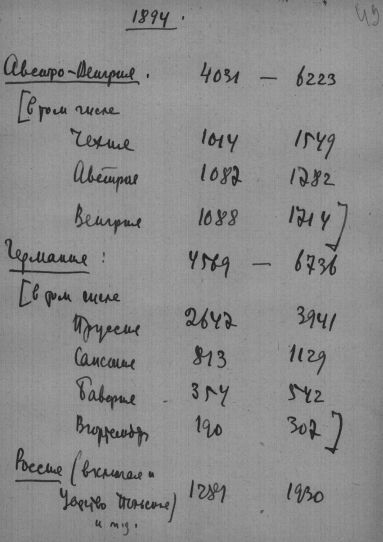 1894. 49
Австро-Венгрия. 4031 — 6223
[в том числе
Чехия 1014 1549
Австрия 1082 1282
Венгрия 1088 1214]
Германия: 4569 — 6736
[в том числе
Пруссия 2642 3941
Саксония 813 1129
Бавария 354 542
Вюртемберг 190 302]
Россия (включая и
Царство Польское) 1281 1930
и т.д.